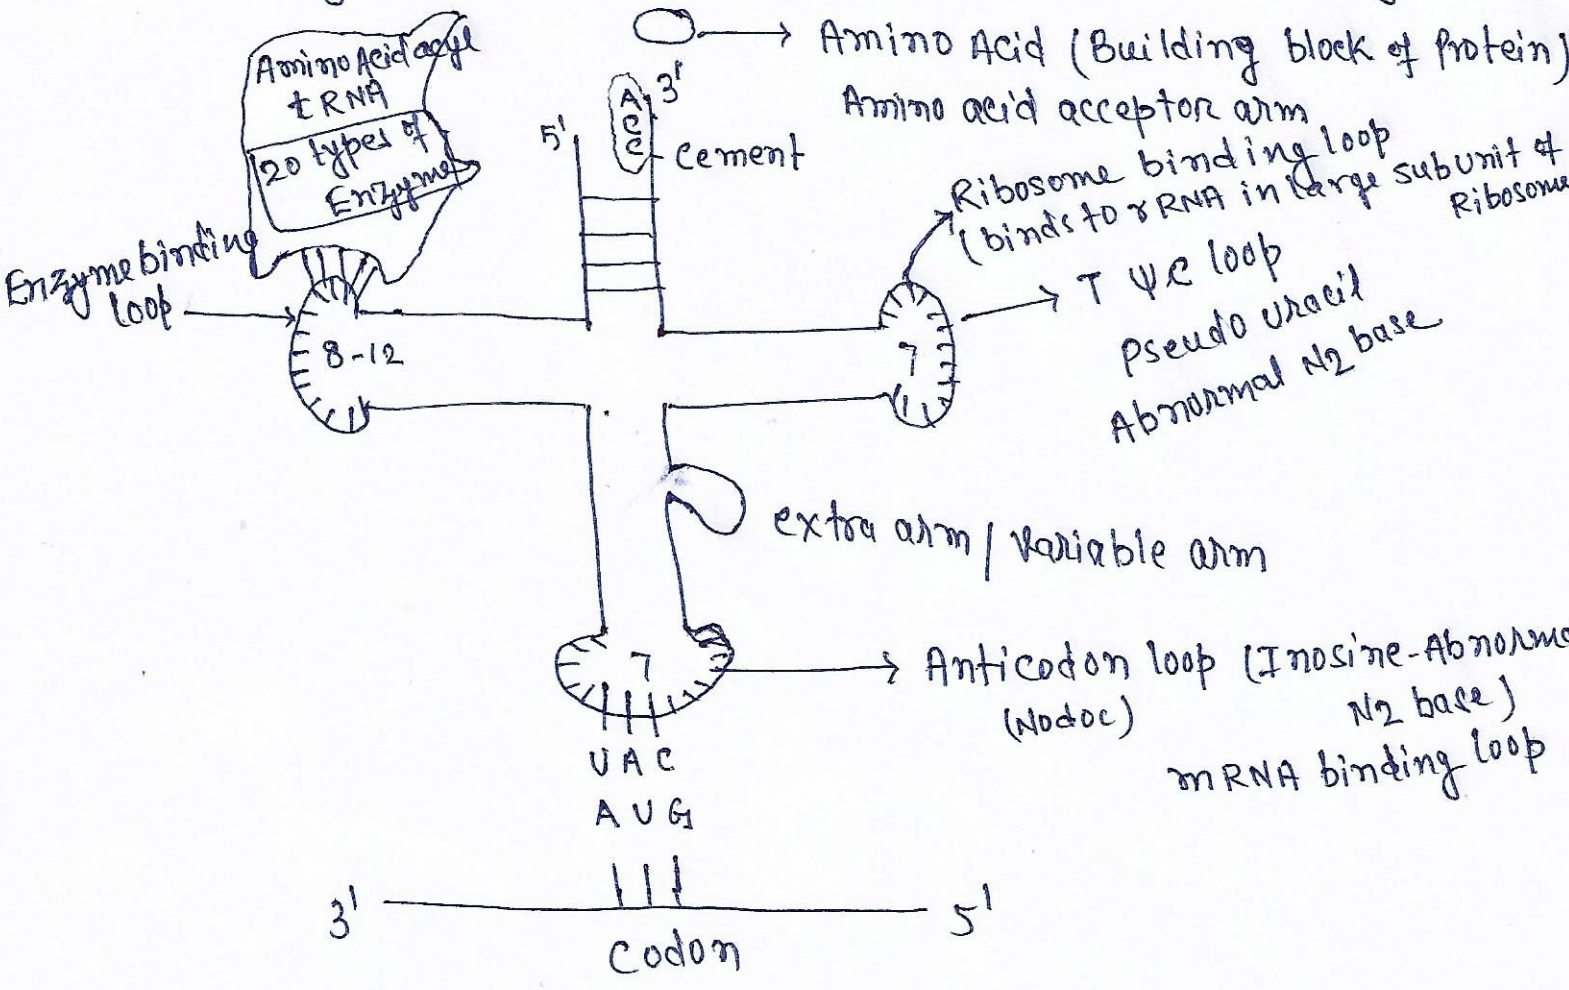 Amino Acid acyl
tRNA
20 types of
Enzymes
Enzyme binding
loop
8-12
5'
A 3'
C
C
Cement
Amino Acid (Building block of Protein)
Amino acid acceptor arm
Ribosome binding loop
(binds to rRNA in large subunit of
Ribosome
7
T ψ C loop
Pseudo uracil
Abnormal N2 base
extra arm / Variable arm
7
Anticodon loop (Inosine-Abnorma
(Nodoc) N2 base)
mRNA binding loop
U A C
A U G
3' 5'
Codon